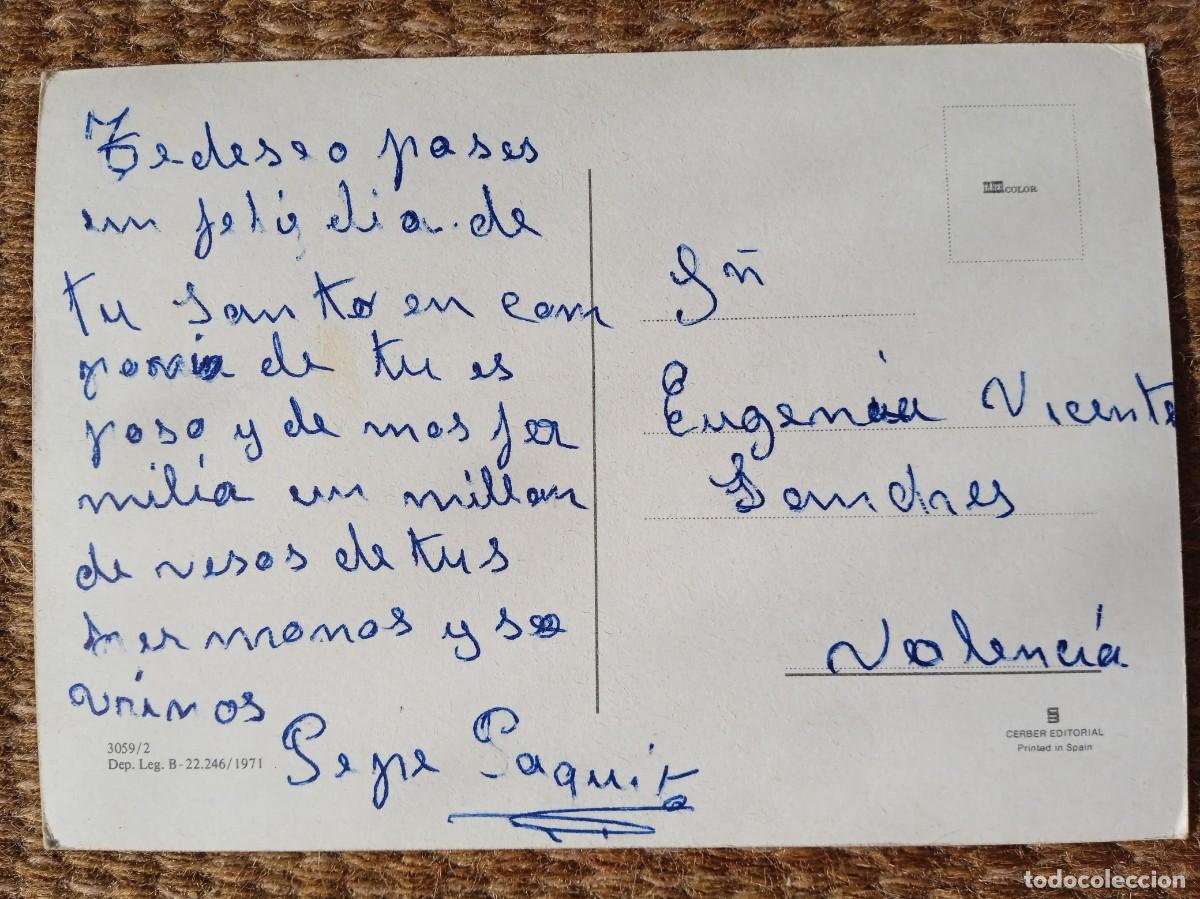 Te deseo pases
un feliz dia de
tu santo en com
pania de tu es
poso y de mas fa
milia un millon
de vesos de tus
hermanos y so
vrinos
Pepe Paquita
3059/2
Dep. Leg. B-22.246/1971
COLOR
Sñ
Eugenia Vicente
Londres
Valencia
CERBER EDITORIAL
Printed in Spain
todocoleccion